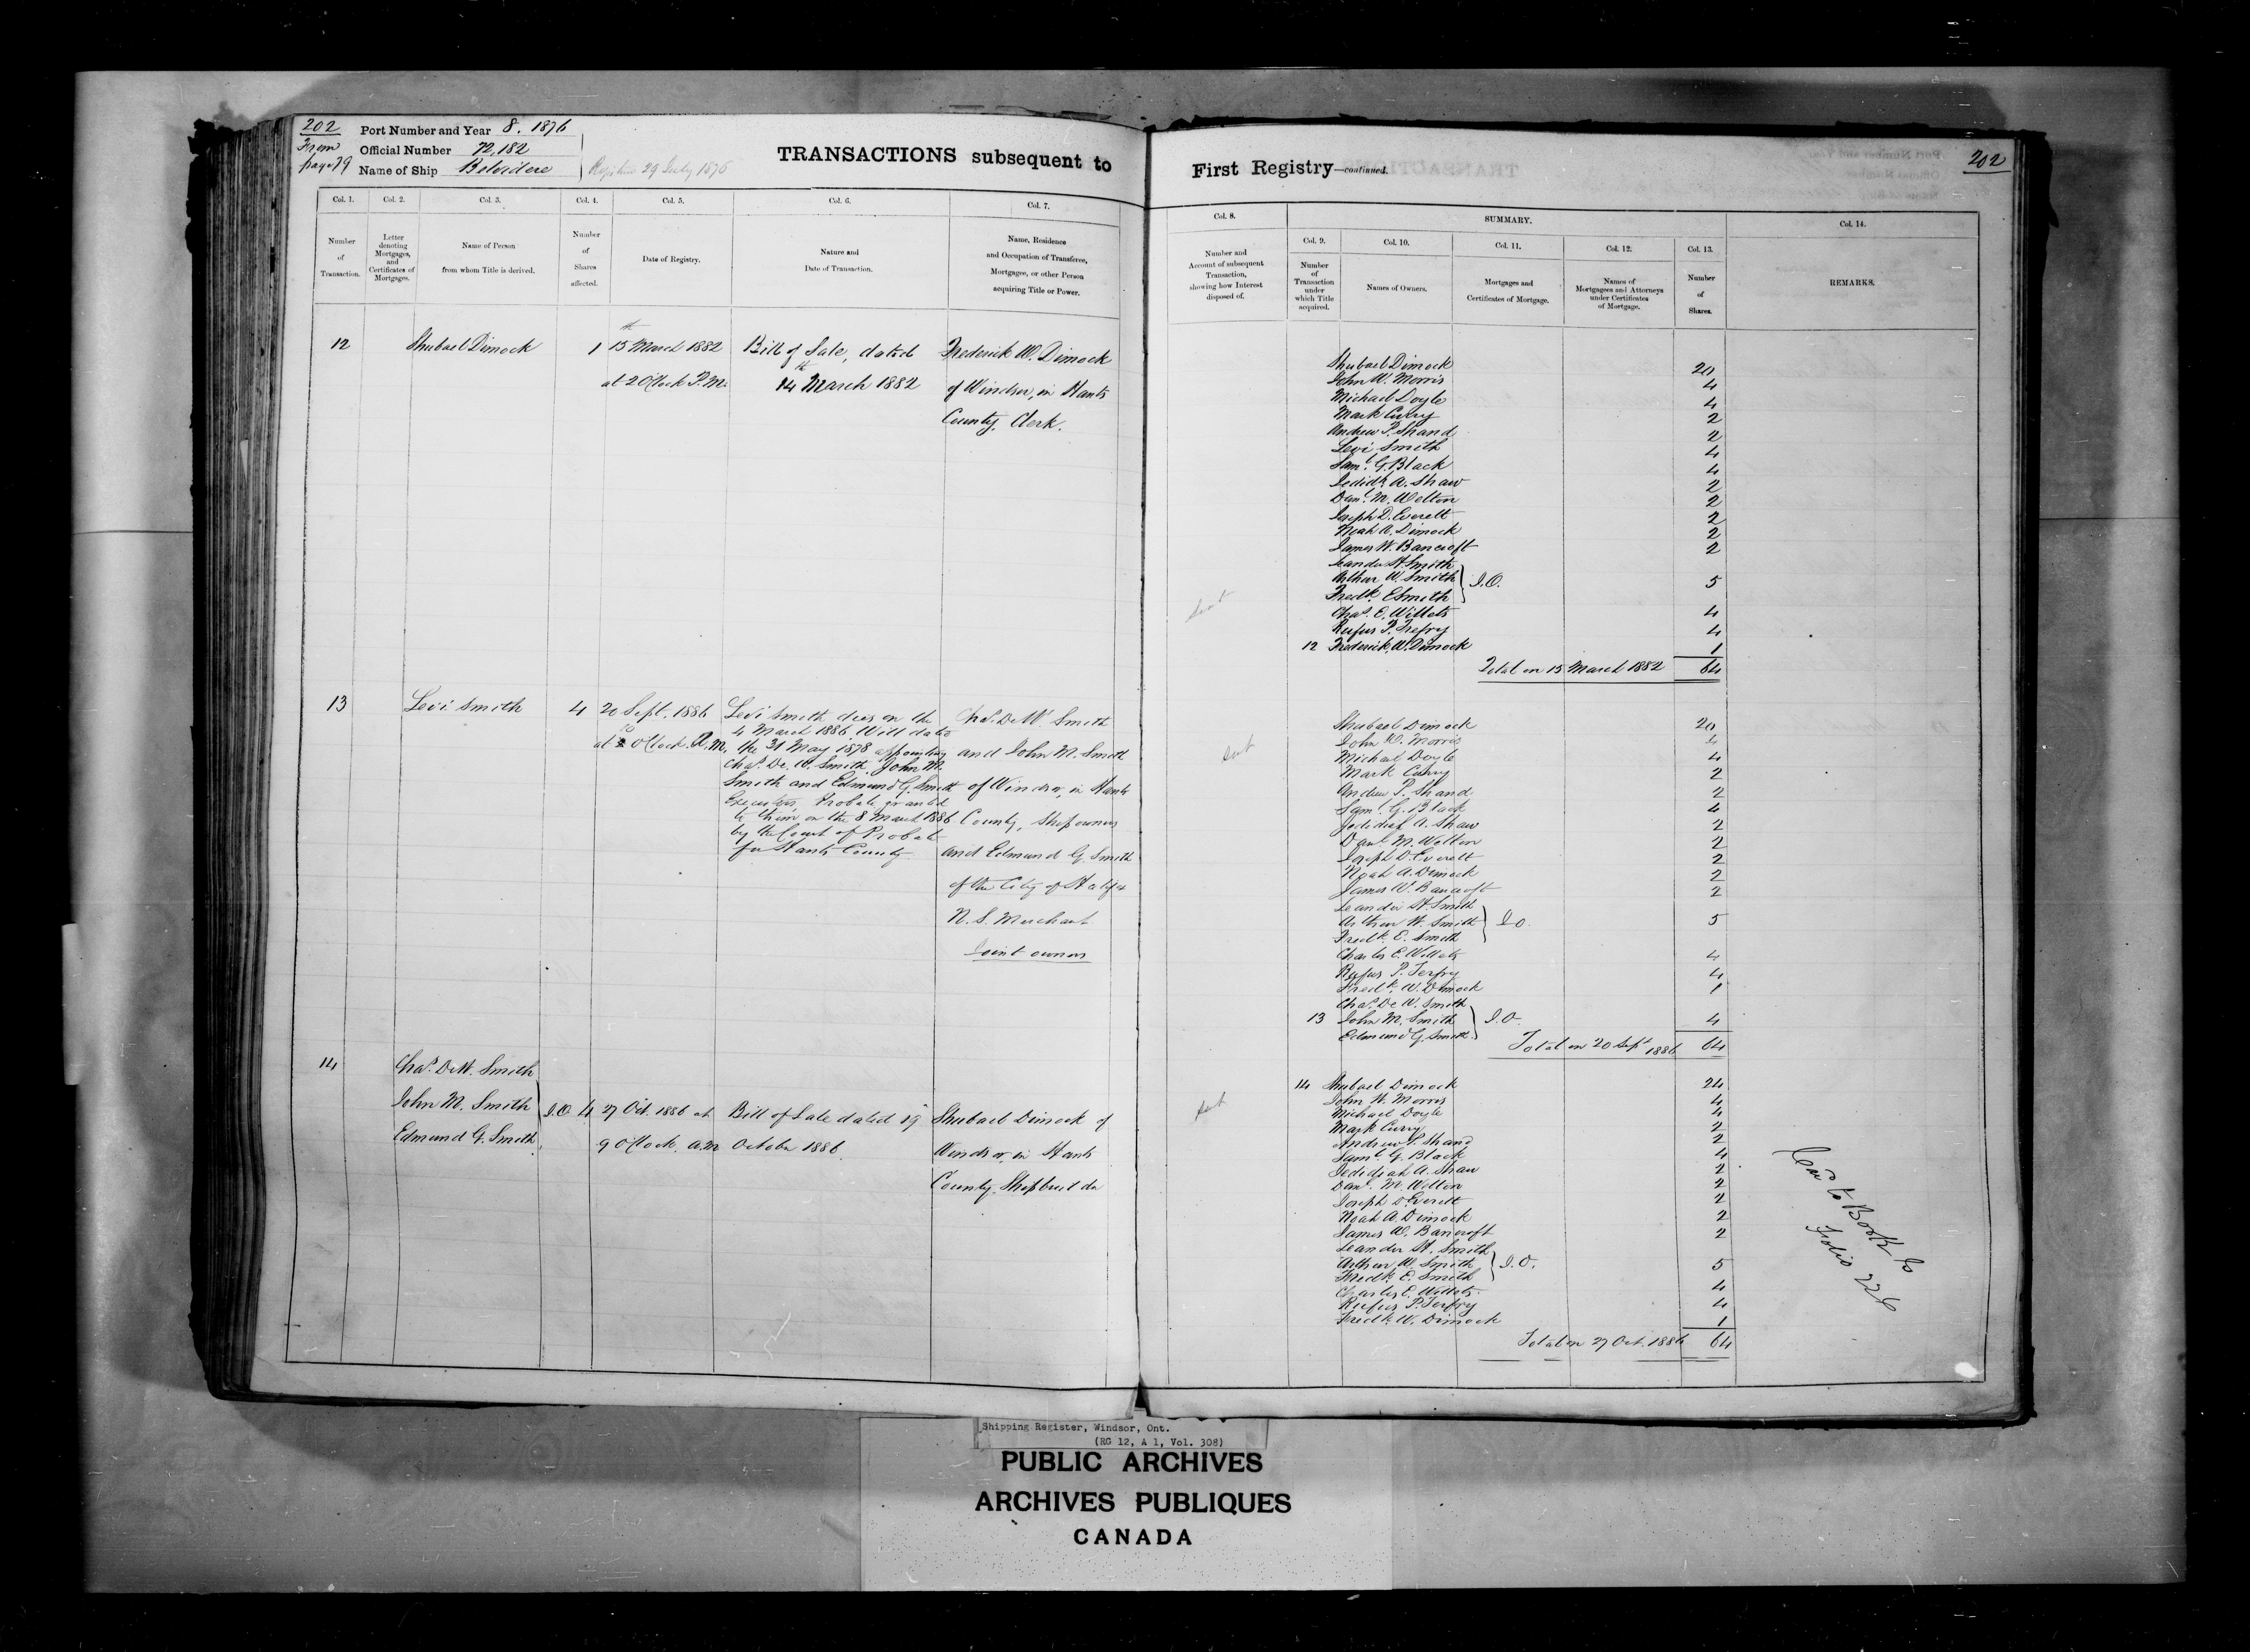 202
From page 79
Port Number and Year 8. 1876
Official Number 72,182
Name of Ship Belvidere
29 July 1876
TRANSACTIONS subsequent to
Col. 1. Col. 2. Col. 3. Col. 4. Col. 5. Col. 6. Col. 7.
Number of Transaction.
Letter denoting Mortgages, and Certificates of Mortgages.
Name of Person from whom Title is derived.
Number of Shares affected.
Date of Registry.
Nature and Date of Transaction.
Name, Residence and Occupation of Transferee, Mortgagee, or other Person acquiring Title or Power.
12 Shubael Dimock 1 15th March 1882 Bill of Sale, dated Frederick W. Dimock
at 2 O'Clock P.M. 14th March 1882 of Windsor, in Hants
County, Clerk.
13 Levi Smith 4 20 Sept. 1886 Levi Smith dies on the Chas. De W. Smith
4 March 1886. Will dated
at 10 O'Clock A.M. the 31 May 1878 appointing and John M. Smith
Chas. De. W. Smith, John M.
Smith and Edmund G. Smith of Windsor, in Hants
Executors, Probate granted
to them on the 8 March 1886 County, Shipowners
by the Court of Probate
for Hants County and Edmund G. Smith
of the City of Halifax
N.S. Merchant
Joint owners
14 Chas. De W. Smith
John M. Smith J.O. 4 27 Oct. 1886 at Bill of Sale dated 19 Shubael Dimock of
Edmund G. Smith 9 O'Clock, a.m. October 1886. Windsor, in Hants
County Shipbuilder
First Registry—continued.
202
Col. 8. SUMMARY. Col. 14.
Col. 9. Col. 10. Col. 11. Col. 12. Col. 13.
Number and Account of subsequent Transaction, showing how Interest disposed of.
Number of Transaction under which Title acquired.
Names of Owners.
Mortgages and Certificates of Mortgage.
Names of Mortgagees and Attorneys under Certificates of Mortgage.
Number of Shares.
REMARKS.
Shubael Dimock 20
John W. Morris 4
Michael Doyle 4
Mark Curry 2
Andrew P. Shand 2
Levi Smith 4
Saml. G. Black 4
Jedidh. A. Shaw 2
Danl. M. Welton 2
Joseph D. Everett 2
Noah A. Dimock 2
James W. Bancroft 2
Leander St. Smith
Arthur W. Smith J.O. 5
Fredk. E Smith
Sent
Chas. E. Willets 4
Rufus P. Trefry 4
12 Frederick W. Dimock 1
Total on 15 March 1882 64
Shubael Dimock 20
John W. Morris 4
Sent
Michael Doyle 4
Mark Curry 2
Andrew P. Shand 2
Saml. G. Black 4
Jedidiah A. Shaw 2
Danl. M. Welton 2
Joseph D. Everett 2
Noah A. Dimock 2
James W. Bancroft 2
Leander St. Smith
Arthur W. Smith J O. 5
Fredk. E. Smith
Charles E. Willets 4
Rufus P. Terfry 4
Fredk. W. Dimock 1
Chas. De W. Smith
13 John M. Smith J.O. 4
Edmund G. Smith
Total on 20 Sept 1886 64
14 Shubael Dimock 24
Sent
John W. Morris 4
Michael Doyle 4
Mark Curry 2
Andrew P. Shand 2
Saml. G. Black 4
Jedidiah A. Shaw 2
Danl. M. Welton 2
Joseph D. Everett 2
Noah A. Dimock 2
James W. Bancroft 2
Leander St. Smith
Arthur W. Smith J.O. 5
Fredk. E. Smith
Charles E. Willets 4
Rufus P. Terfry 4
Fredk. W. Dimock 1
Total on 27 Oct. 1886 64
to Book
Folio 226
Shipping Register, Windsor, Ont.
(RG 12, A 1, Vol. 308)
PUBLIC ARCHIVES
ARCHIVES PUBLIQUES
CANADA